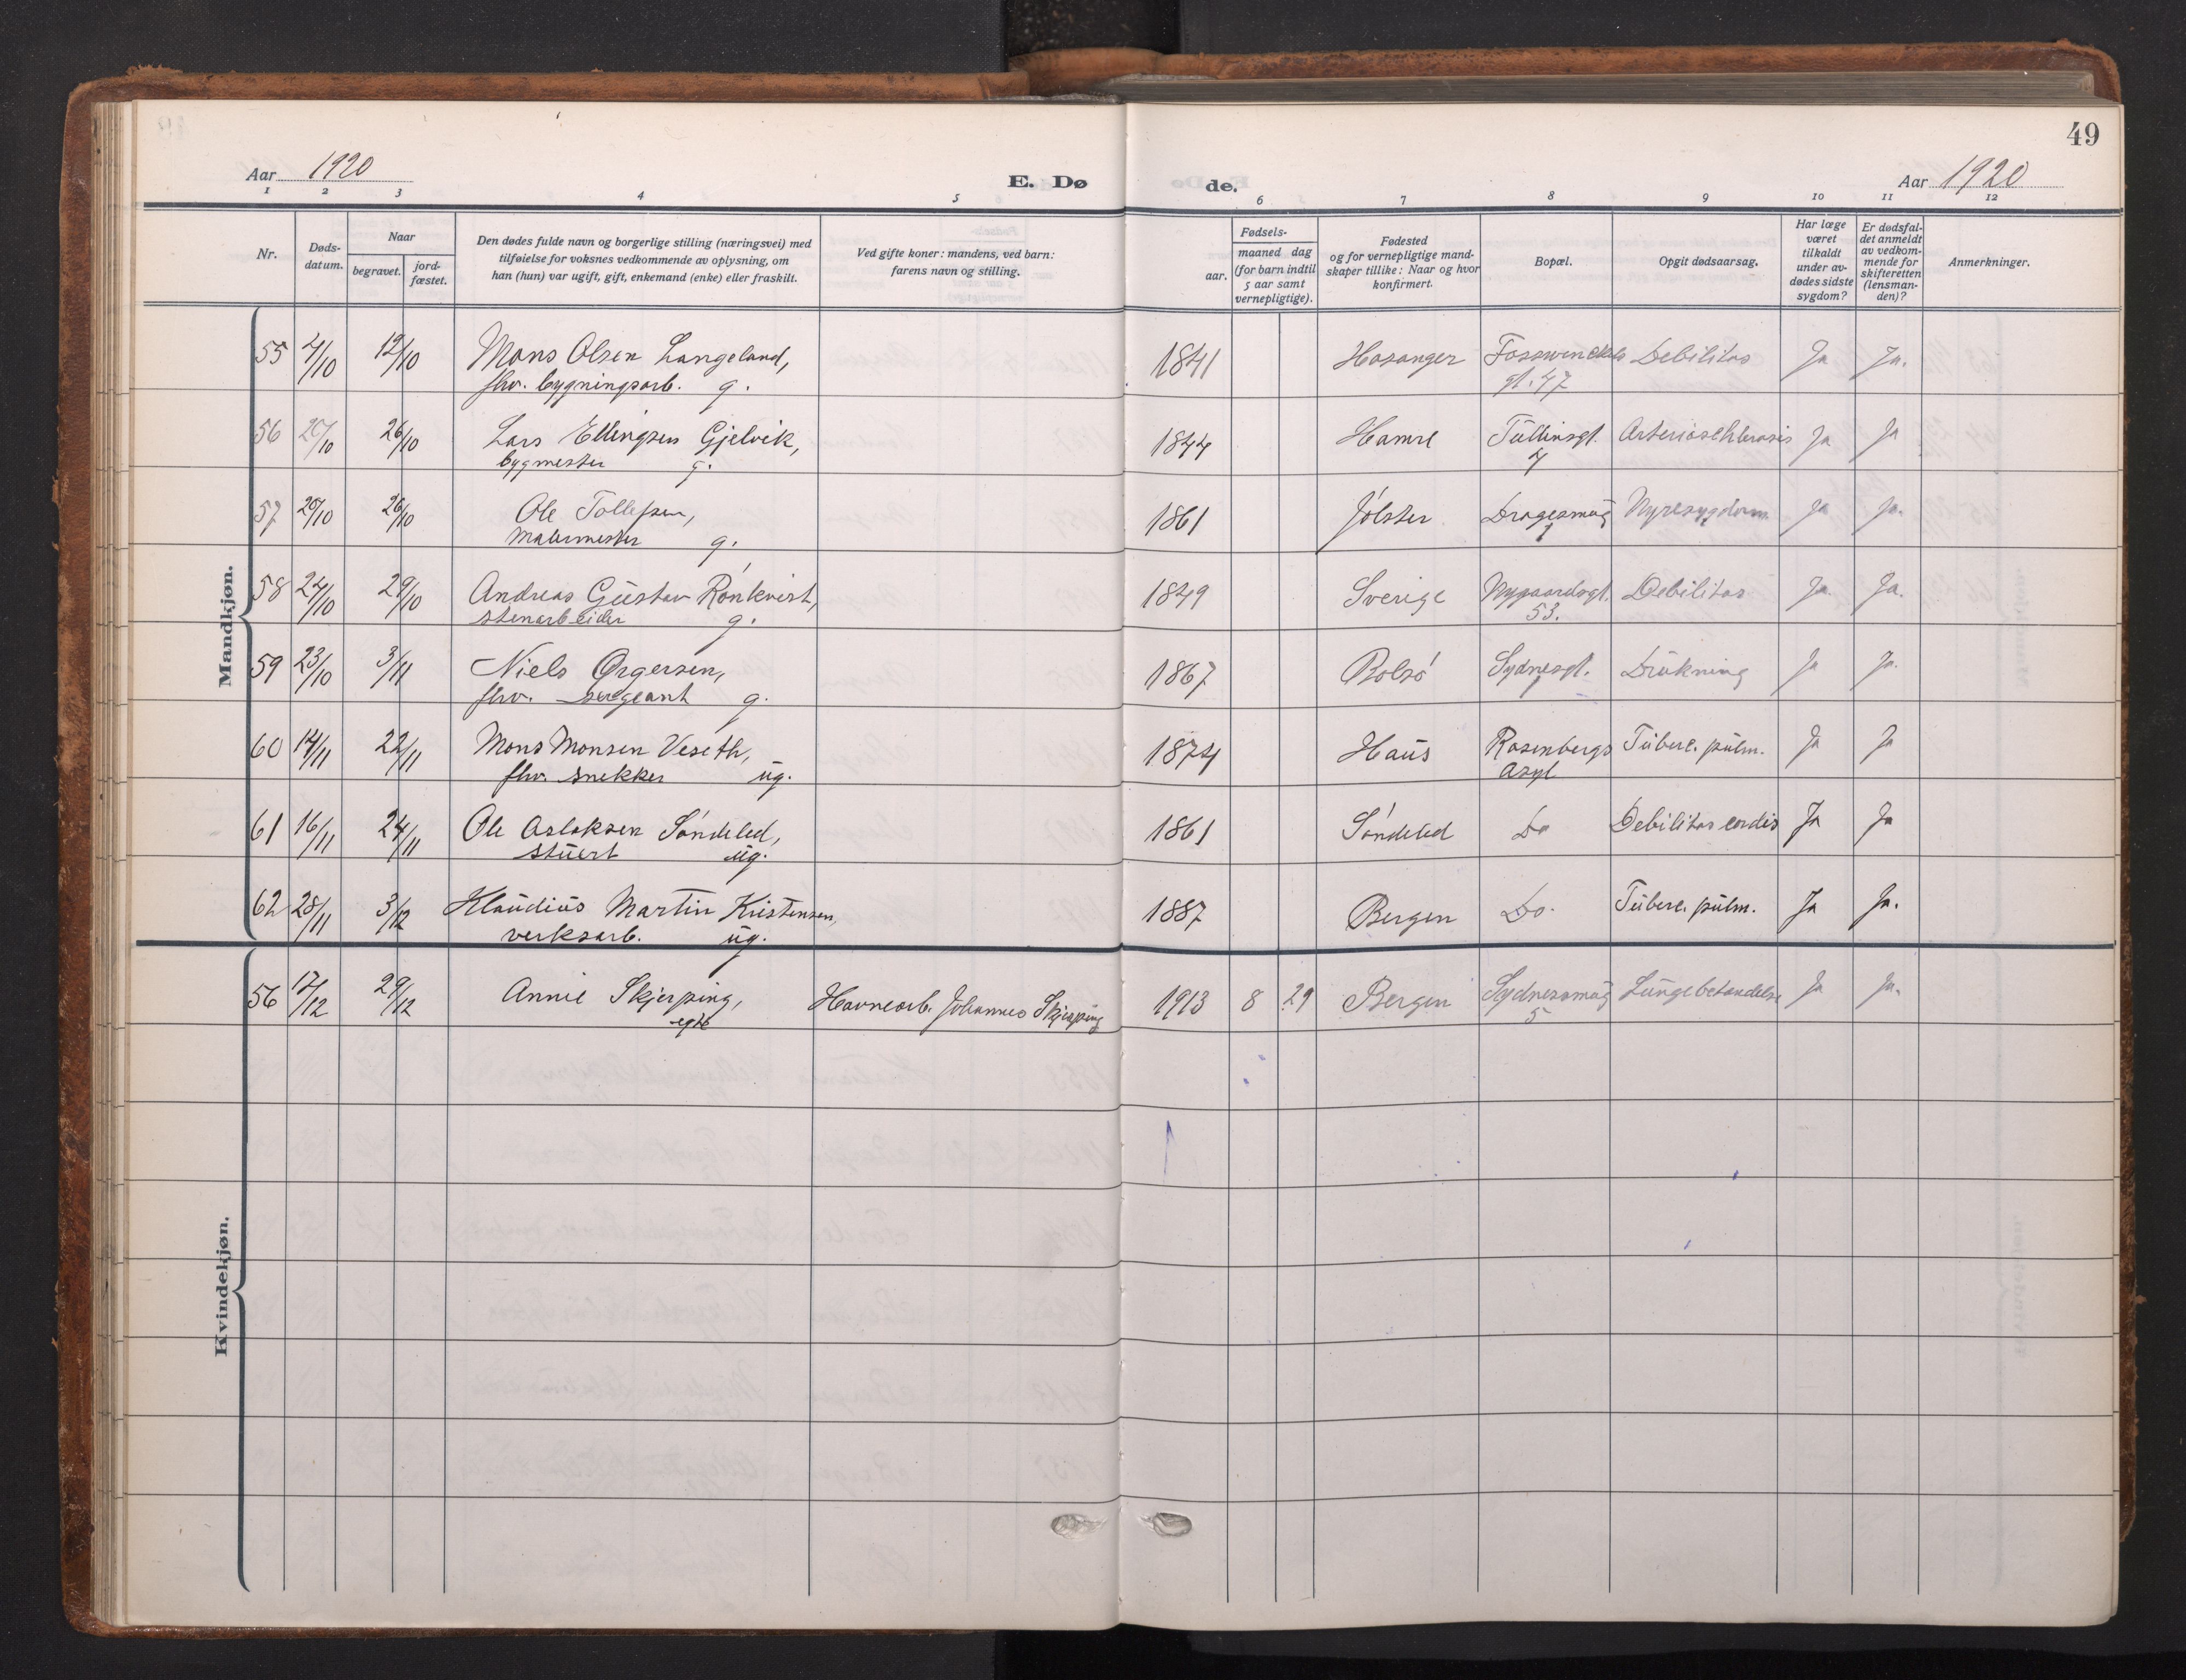 49
Aar 1920
E. Dø de.
Aar 1920
1 2 3 4 5 6 7 8 9 10 11 12
Nr.
Døds-
datum.
Naar
begravet.
jord-
fæstet.
Den dødes fulde navn og borgerlige stilling (næringsvei) med
tilføielse for voksnes vedkommende av oplysning, om
han (hun) var ugift, gift, enkemand (enke) eller fraskilt.
Ved gifte koner: mandens, ved barn:
farens navn og stilling.
Fødsels-
aar.
maaned dag
(for barn indtil
5 aar samt
vernepligtige).
Fødested
og for vernepligtige mand-
skaper tillike: Naar og hvor
konfirmert.
Bopæl.
Opgit dødsaarsag.
Har læge
været
tilkaldt
under av-
dødes sidste
sygdom?
Er dødsfal-
det anmeldt
av vedkom-
mende for
skifteretten
(lensman-
den)?
Anmerkninger.
Mandkjøn.
55 4/10 12/10 Mons Olsen Langeland, 1841 Hosanger Fosswinckels Debilitas Ja Ja.
fhv. bygningsarb. g. gt. 47
56 20/10 26/10 Lars Ellingsen Gjelvik, 1844 Hamre Tullinsgt. Arteriosklerosis Ja Ja
bygmester g. 7
57 20/10 26/10 Ole Tollefsen, 1861 Jølster Dragesmug Nyresygdom Ja Ja.
Malermester g. 1
58 24/10 29/10 Andreas Gustav Rönkvist, 1849 Sverige Nygaardsgt. Debilitas Ja. Ja.
stenarbeider g. 53.
59 23/10 3/11 Niels Ørgersen, 1867 Bolsø Sydnesgt. Drukning Ja Ja.
fhv. sergeant g.
60 14/11 22/11 Mons Monsen Veseth, 1874 Haus Rosenbergs Tuberc. pulm. Ja Ja
fhv. snekker ug. Asyl
61 16/11 24/11 Ole Aslaksen Søndeled, 1861 Søndeled Do Debilitas cordis Ja Ja
stuert ug.
62 28/11 3/12 Klaudius Martin Kristensen, 1887 Bergen Do. Tuberc. pulm. Ja Ja.
verksarb. ug.
Kvindekjøn.
56 17/12 29/12 Annie Skjerping, Havnearb. Johannes Skjerping 1913 8 29 Bergen Sydnessmug Lungebetændelse Ja Ja.
egte 5